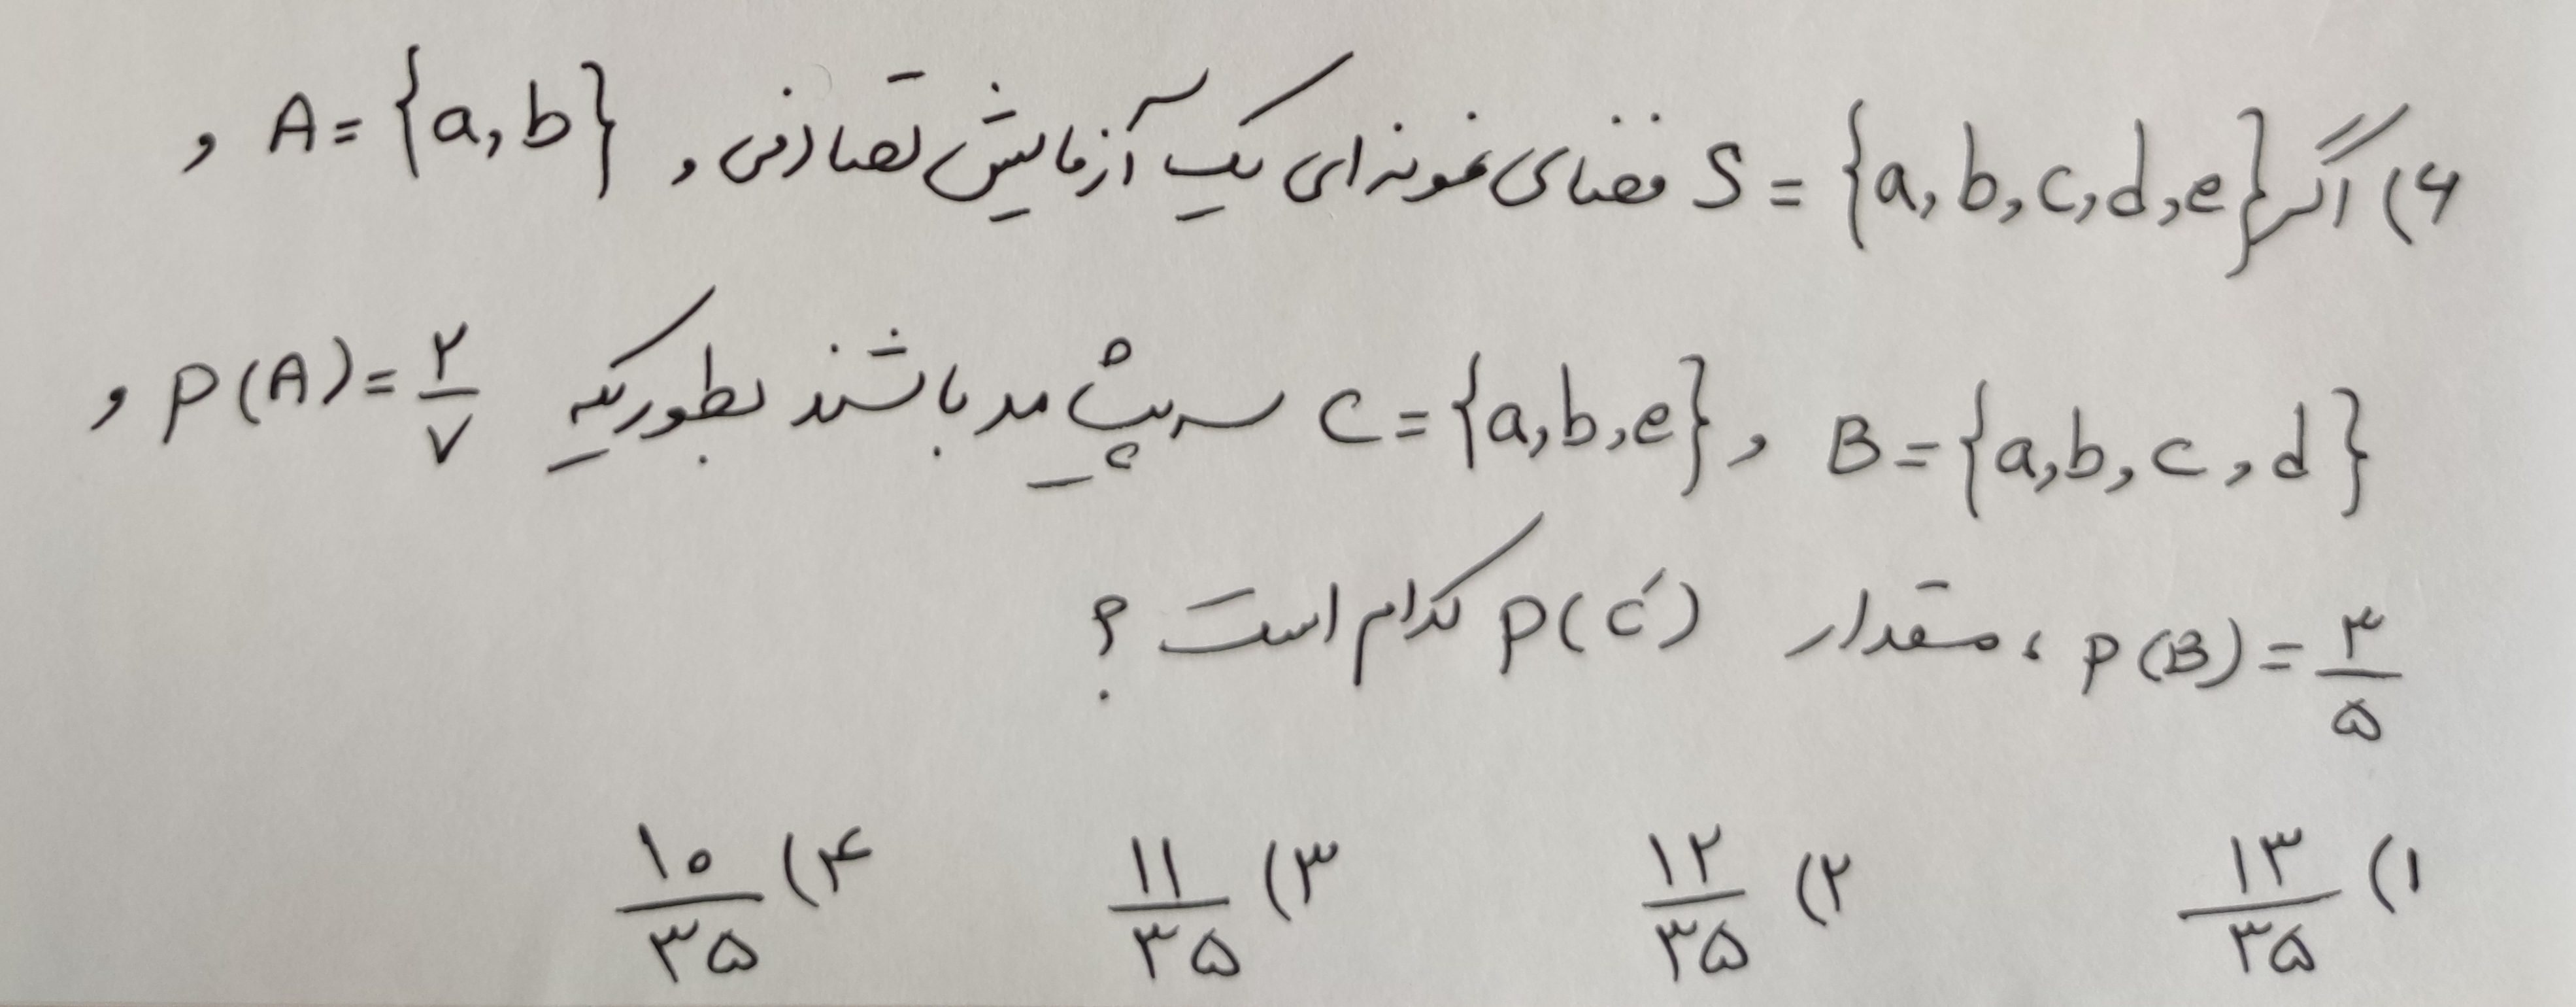 ۶) اگر S = {a, b, c, d, e} فضای نمونه‌ای یک آزمایش تصادفی و A = {a, b} و
B = {a, b, c, d} و C = {a, b, e} سه پیشامد باشند بطوریکه P(A) = ۲/۷ و
P(B) = ۳/۵ ، مقدار P(C′) کدام است ؟
۱) ۱۳/۳۵ ۲) ۱۲/۳۵ ۳) ۱۱/۳۵ ۴) ۱۰/۳۵